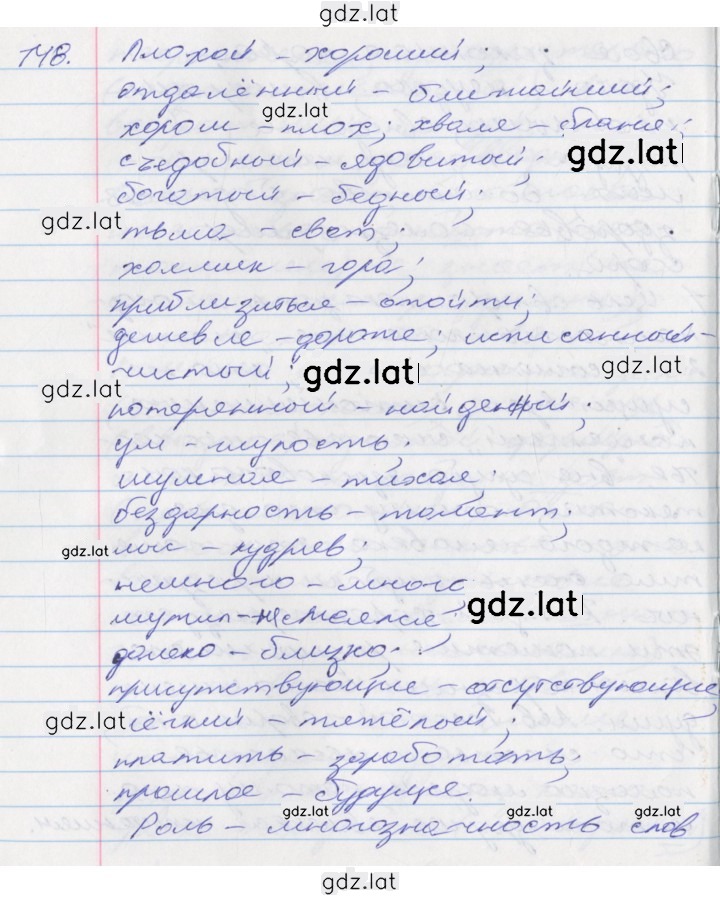 gdz.lat
148. Плохой - хороший;
отдалённый - ближайший;
gdz.lat
хором - плох; хваля - браня;
gdz.lat
съедобный - ядовитый;
богатый - бедный;
gdz.lat
тьма - свет;
холмик - гора;
приблизиться - отойти,
дешевле - дороже; исписанный -
gdz.lat
чистый;
gdz.lat
gdz.lat
потерянный - найденный;
ум - глупость;
шумная - тихая;
бездарность - талант;
gdz.lat
лыс - кудряв;
немного - много
gdz.lat
шутил -
далеко - близко;
присутствующие - отсутствующие,
gdz.lat
лёгкий - тяжёлый;
платить - заработать;
прошлое - будущее.
gdz.lat
gdz.lat
gdz.lat
Роль - многозначность слов
gdz.lat